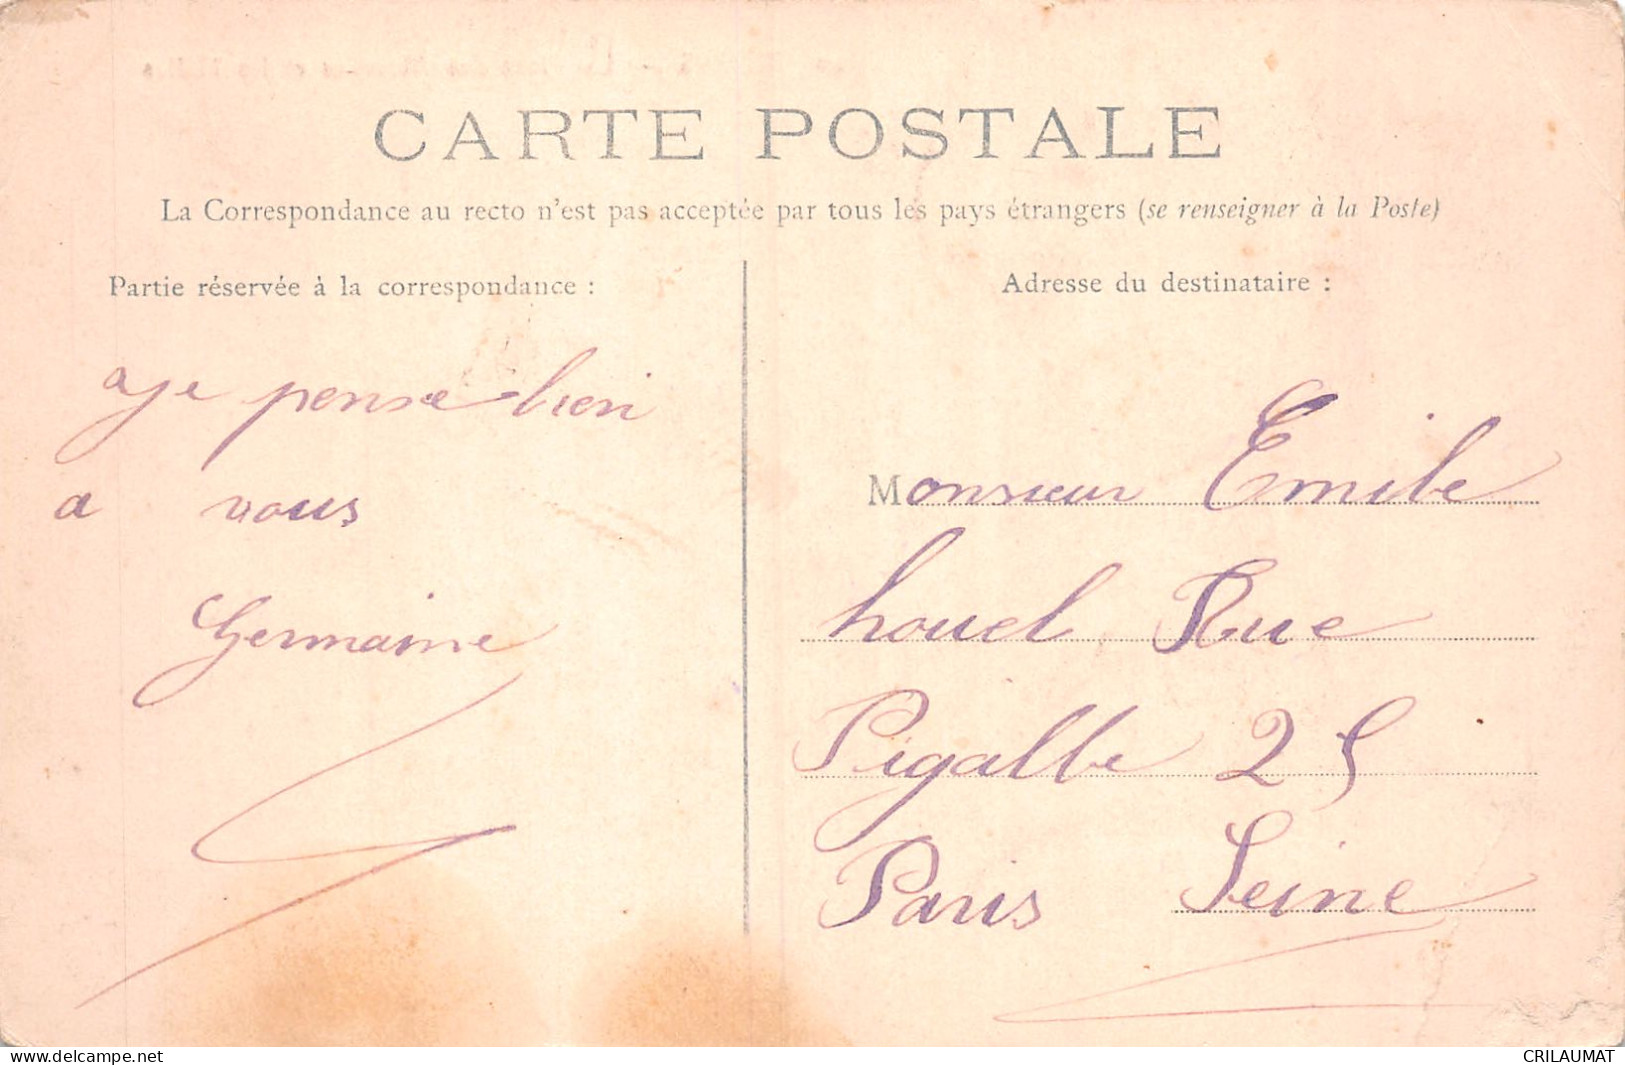 CARTE POSTALE
La Correspondance au recto n'est pas acceptée par tous les pays étrangers (se renseigner à la Poste)
Partie réservée à la correspondance :
je pense bien
a vous
Germaine
Adresse du destinataire :
Monsieur Emile
houel Rue
Pigalle 25
Paris Seine
www.delcampe.net
CRILAUMAT